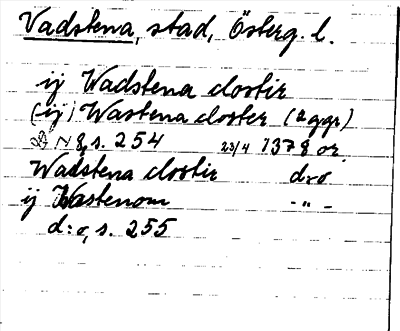 Vadstena, stad, Österg. l.
ij Wadstena clostir
(ij) Wastena closter (2 ggr)
N 8, s. 254 23/4 1378 or.
Wadstena clostir d:o
ij Wastenom - " -
d:o, s. 255